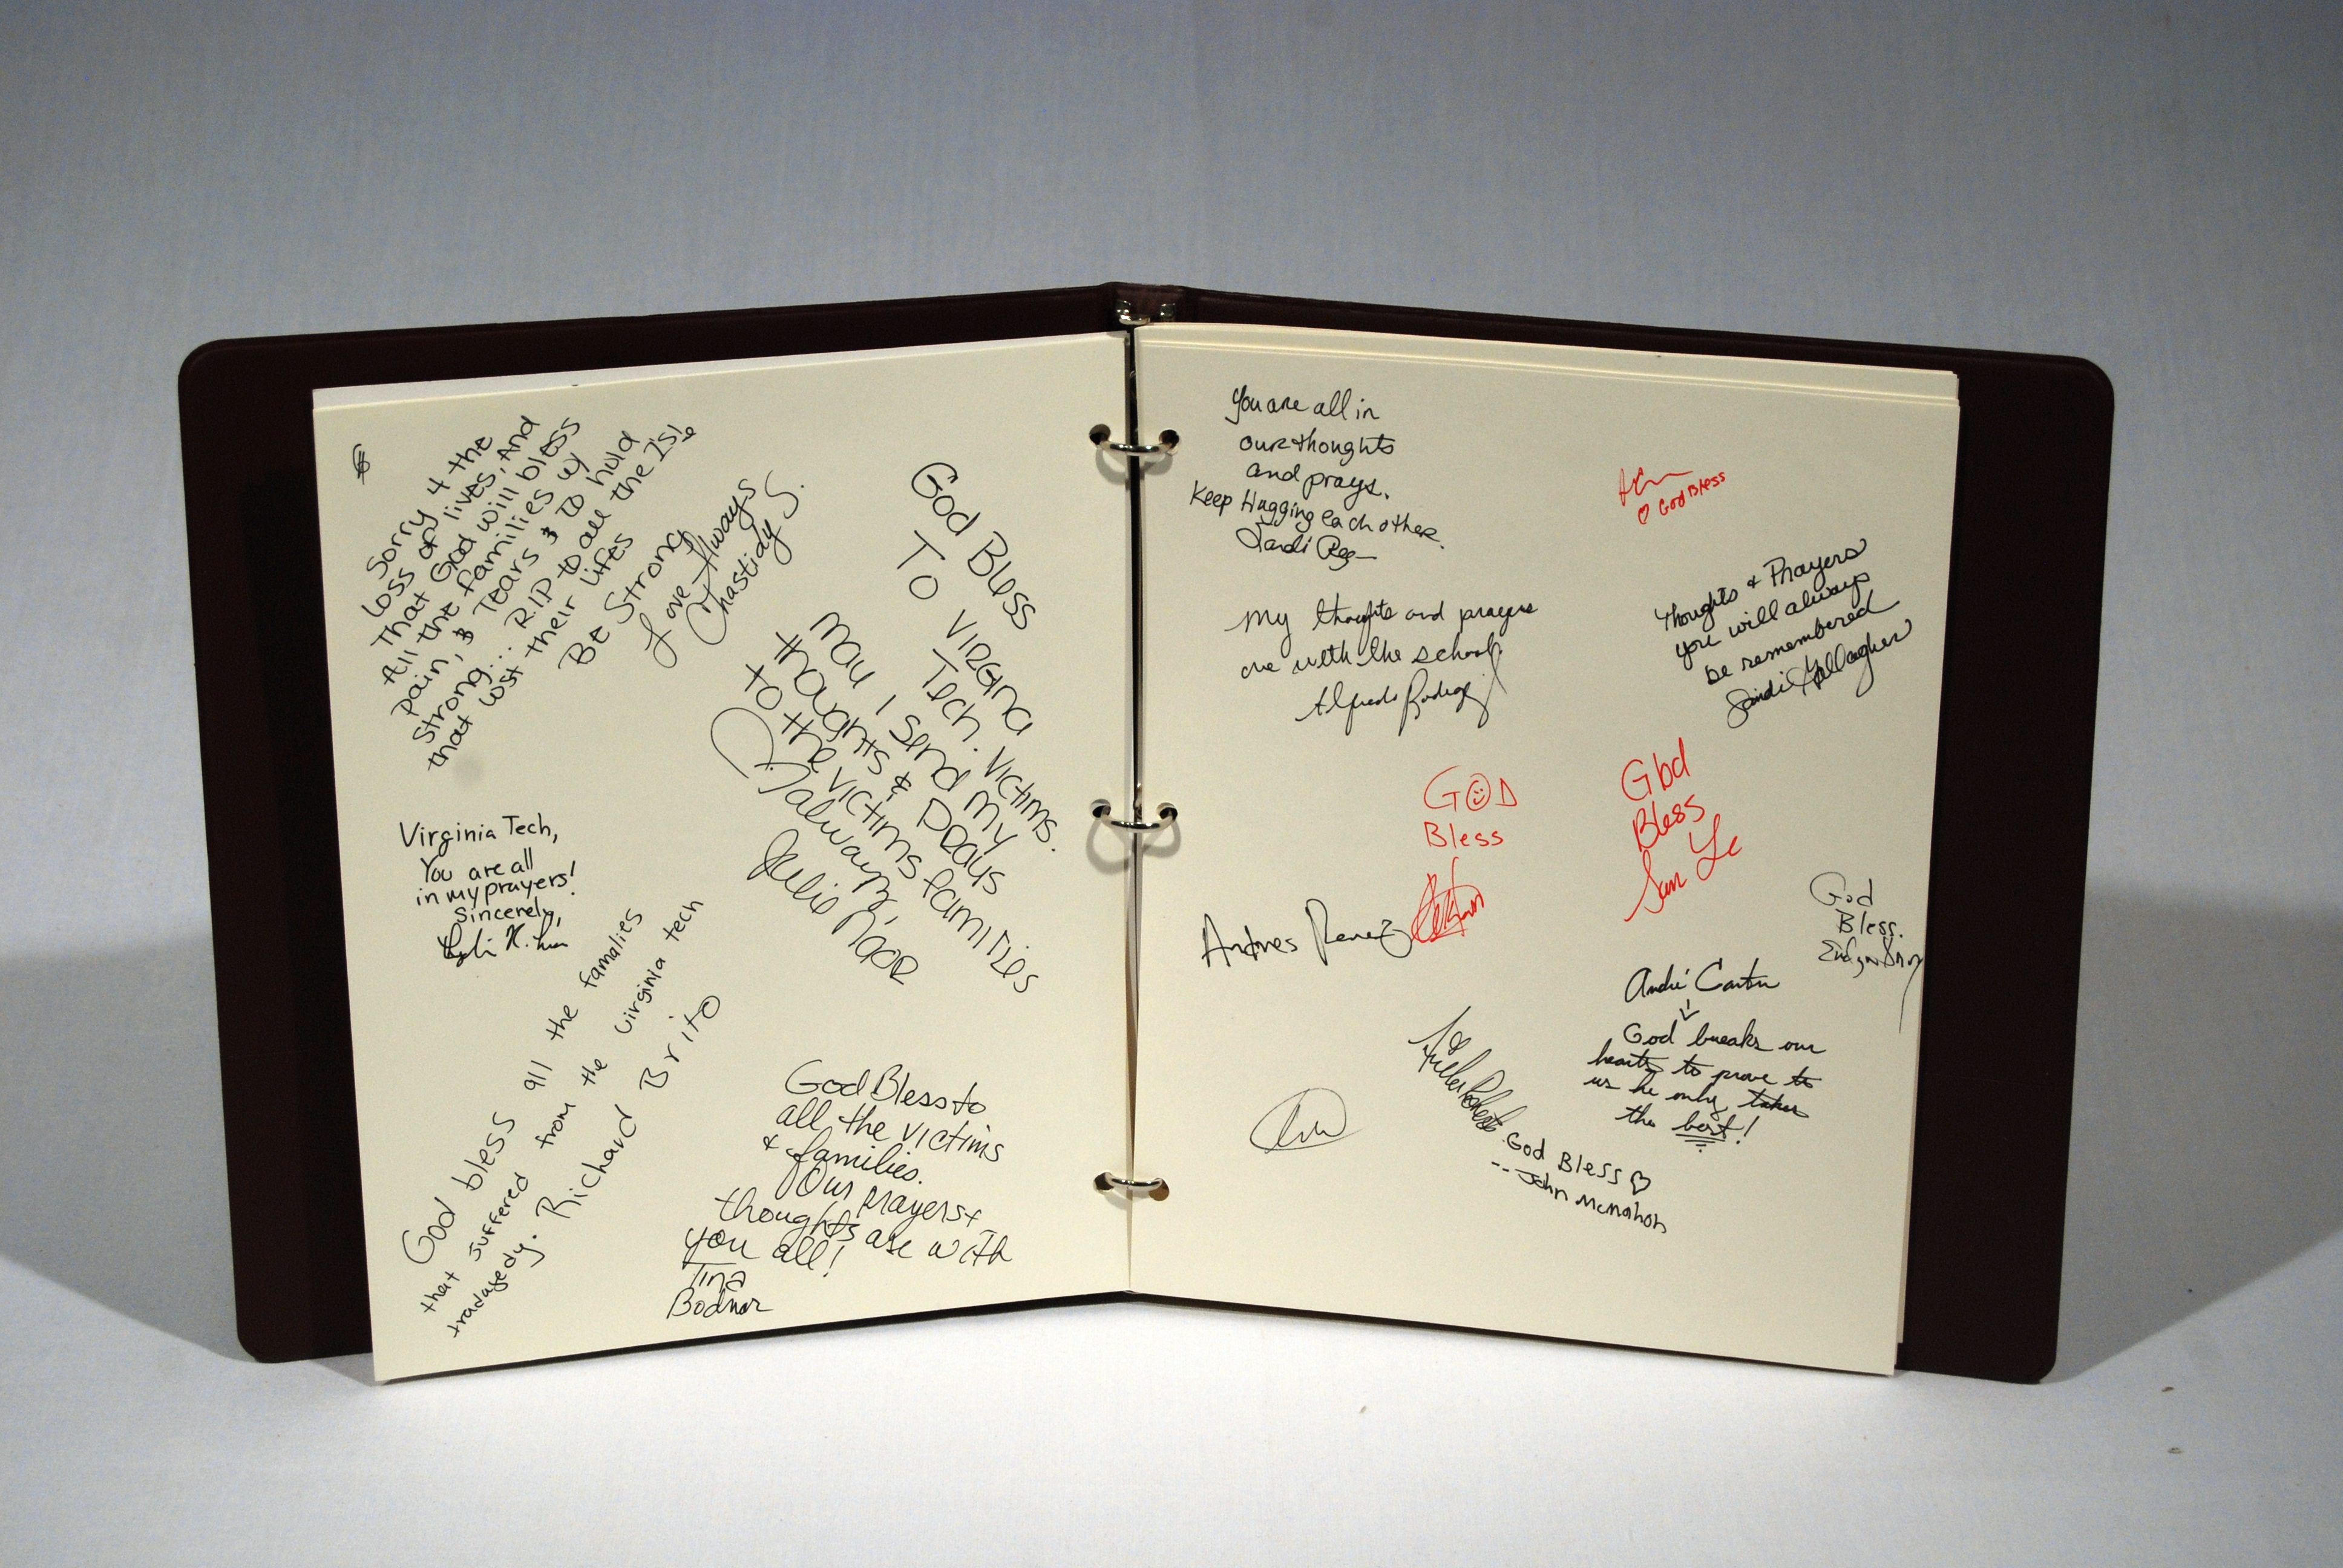 Sorry 4 the
Loss of lives, And
That God will bless
All the families w/
pain, & Tears & To hold
Strong... R.I.P to all the
that lost their lifes
Be Strong
Love Always
Chastidy S.
God Bless
To VIRGINA
Tech. Victims.
May I Send my
thoughts & Prays
to the victims families
always,
Julie
Virginia Tech,
You are all
in my prayers!
Sincerely,
God bless all the famalies
that suffered from the virginia tech
tradagedy. Richard Brito
God Bless to
all the victims
& families.
Our prayers +
thoughts are with
you all!
Tina
Bodnar
You are all in
our thoughts
and prays.
Keep Hugging each other.
My thoughts and prayers
are with the school
Alfredo
♡ God Bless
Thoughts & Prayers
you will always
be remembered
Sandi Gallagher
GOD
Bless
God
Bless
Andres
God
Bless.
André
God breaks our
hearts to prove to
us he only takes
the best!
God Bless ♡
-- John McMahon